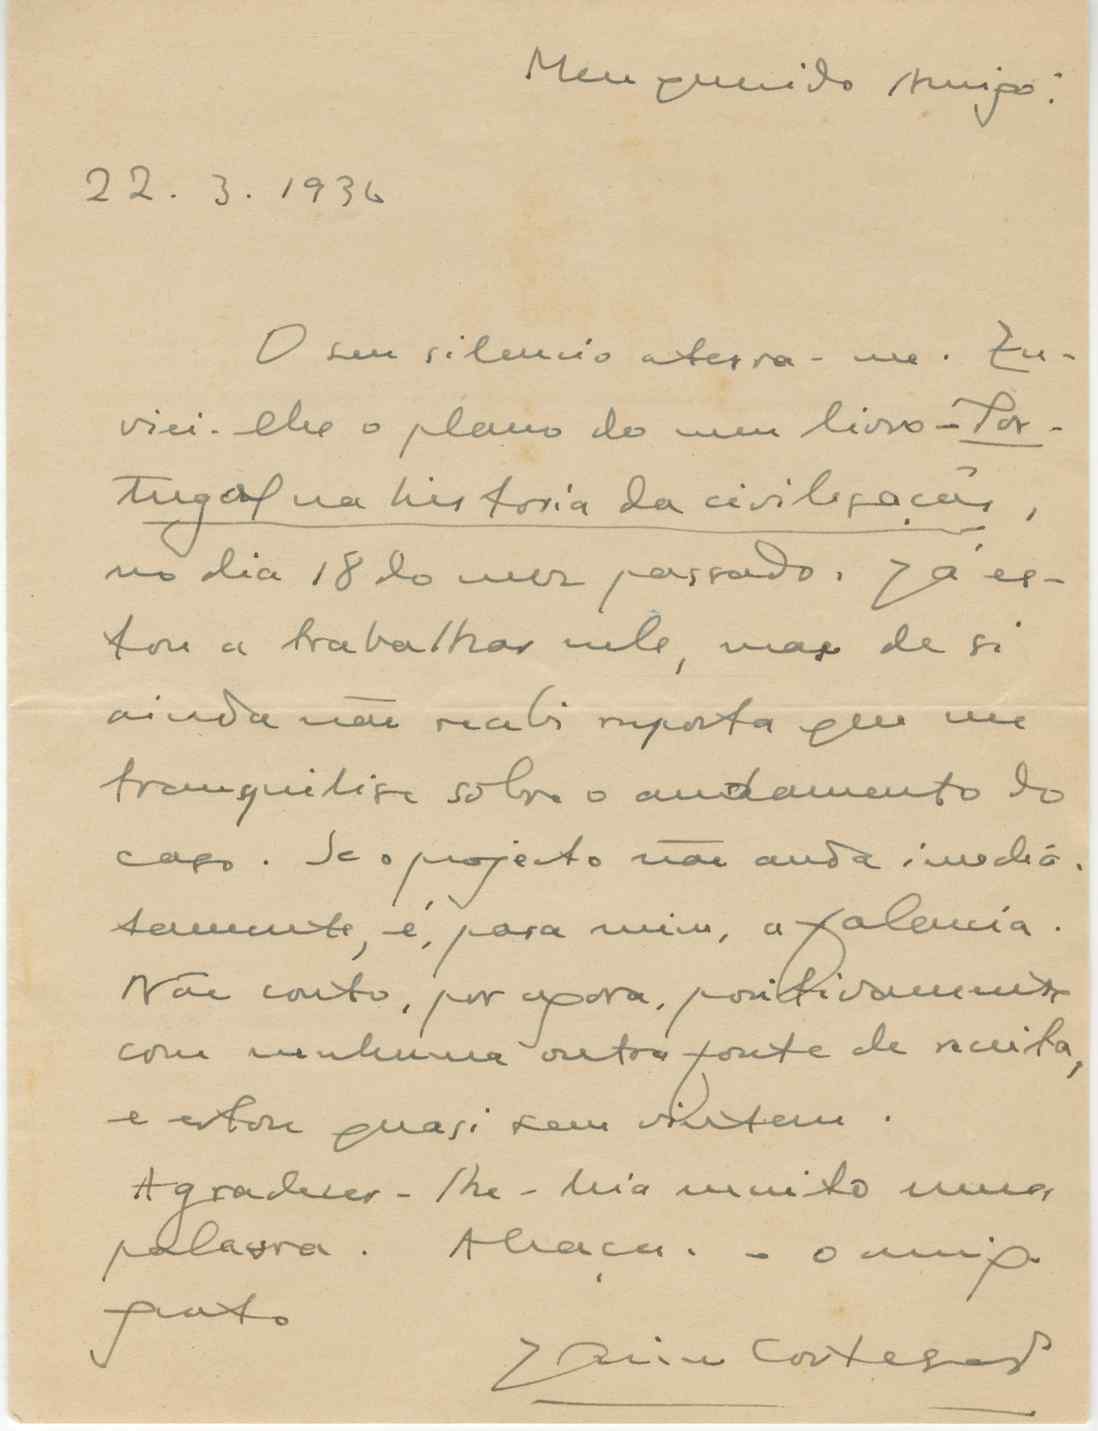 Meu querido Amigo:
22. 3. 1936
O seu silencio aterra-me. En-
viei-lhe o plano do meu livro – Por-
tugal na historia da civilização,
no dia 18 do mez passado. Já es-
tou a trabalhar nele, mas de si
ainda não recebi resposta que me
tranquilise sôbre o andamento do
caso. Se o projecto não anda imediá-
tamente, é, para mim, a falencia.
Não conto, por agora, positivamente
com nenhuma outra fonte de receita,
e estou quasi sem vintem.
Agradecer-lhe-hia muito uma
palavra. Abraça-o o amigo
grato
Jaime Cortesão